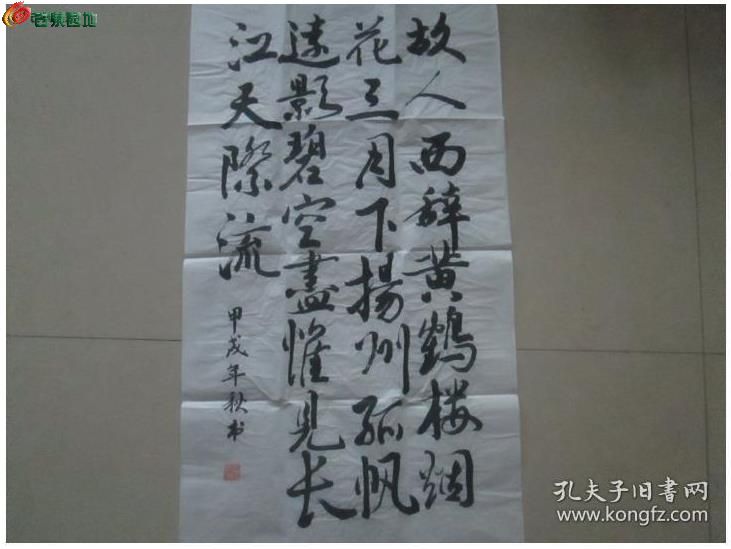 故人西辞黄鹤楼烟
花三月下揚州孤帆
遠影碧空盡惟見长
江天際流
甲戌年秋书
孔夫子旧书网
www.kongfz.com